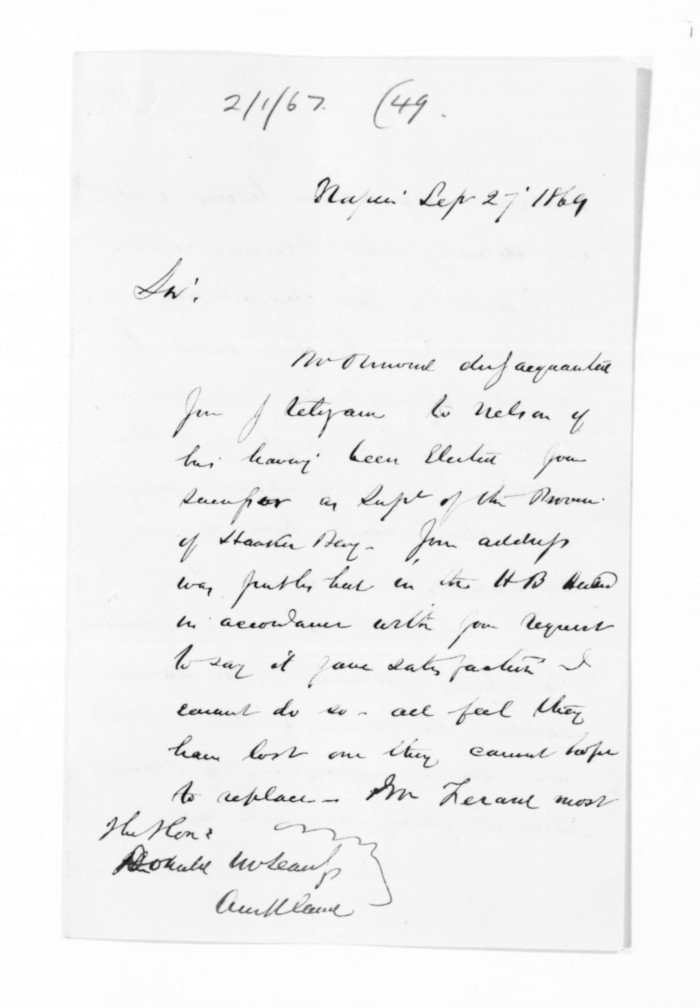 2/1/67. (49.
Napier Sept 27 / 1869
Sir.
Mr Ormond duly acquainted
you by telegram to Nelson of
his having been Elected your
successor as Supt of the Provin.
of Hawkes Bay - Your address
was published in the H B Herald
in accordance with your request
to say it gave satisfaction I
cannot do so - all feel they
have lost one they cannot hope
to replace - Mr most
The Hon:
Donald McLean
Auckland